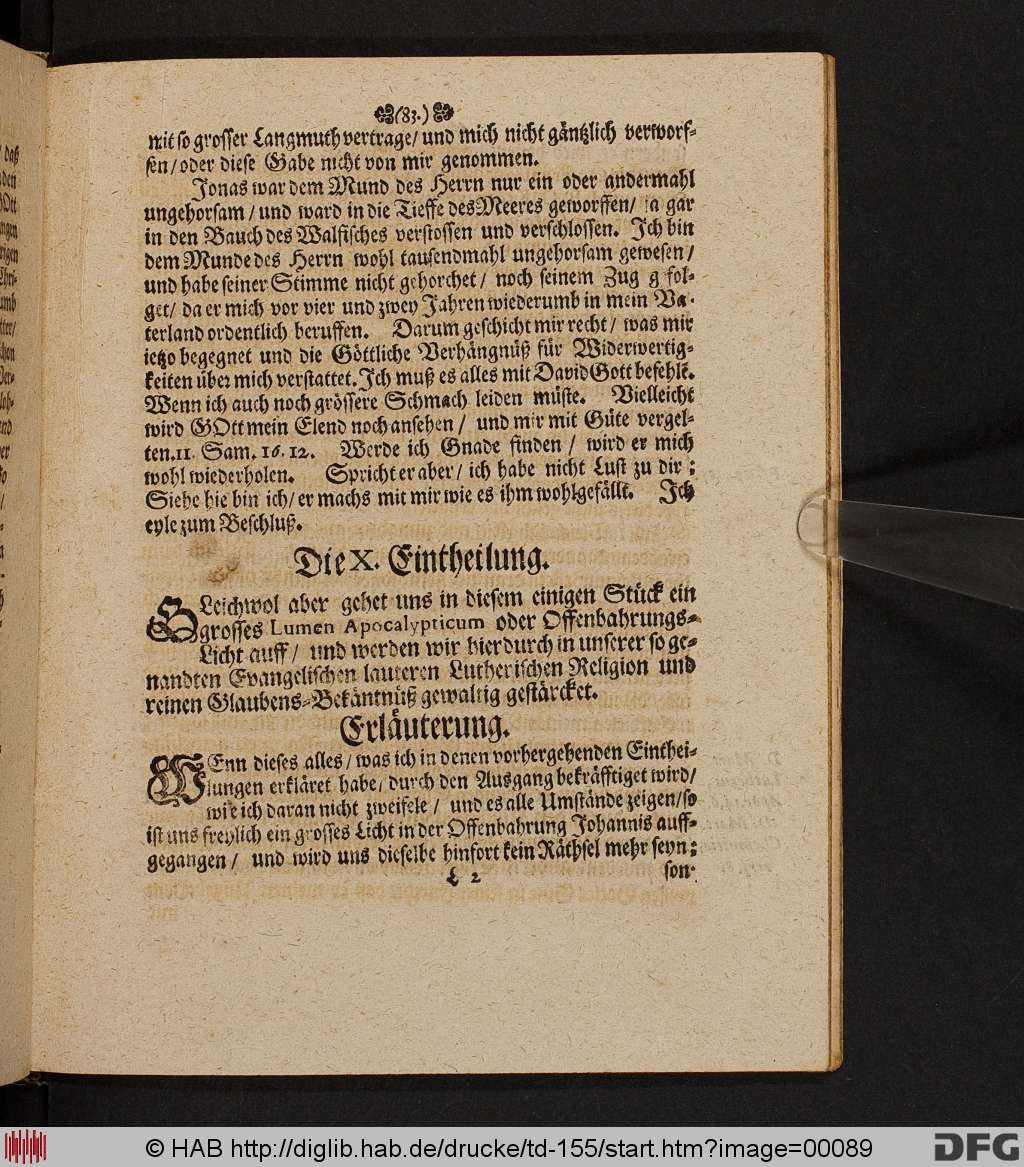 (83.)
mit so grosser Langmuth vertrage/ und mich nicht gäntzlich verworf-
fen/ oder diese Gabe nicht von mir genommen.
Jonas war dem Mund des Herrn nur ein oder andermahl
ungehorsam/ und ward in die Tieffe des Meeres geworffen/ ja gar
in den Bauch des Walfisches verstossen und verschlossen. Ich bin
dem Munde des Herrn wohl tausendmahl ungehorsam gewesen/
und habe seiner Stimme nicht gehorchet/ noch seinem Zug g fol-
get/ da er mich vor vier und zwey Jahren wiederumb in mein Va-
terland ordentlich beruffen. Darum geschicht mir recht/ was mir
ietzo begegnet und die Göttliche Verhängnüß für Widerwertig-
keiten über mich verstattet. Ich muß es alles mit David Gott befehlē.
Wenn ich auch noch grössere Schmach leiden müste. Vielleicht
wird GOtt mein Elend noch ansehen/ und mir mit Güte vergel-
ten. II. Sam. 16. 12. Werde ich Gnade finden/ wird er mich
wohl wiederholen. Spricht er aber/ ich habe nicht Lust zu dir:
Siehe hie bin ich/ er machs mit mir wie es ihm wohlgefällt. Ich
eyle zum Beschluß.
Die X. Eintheilung.
GLeichwol aber gehet uns in diesem einigen Stück ein
grosses Lumen Apocalypticum oder Offenbahrungs-
Licht auff/ und werden wir hierdurch in unserer so ge-
nandten Evangelischen lauteren Lutherischen Religion und
reinen Glaubens-Bekäntnüß gewaltig gestärcket.
Erläuterung.
WEnn dieses alles/ was ich in denen vorhergehenden Einthei-
lungen erkläret habe/ durch den Ausgang bekräfftiget wird/
wie ich daran nicht zweifele/ und es alle Umstände zeigen/ so
ist uns freylich ein grosses Licht in der Offenbahrung Johannis auff-
gegangen/ und wird uns dieselbe hinfort kein Räthsel mehr seyn:
L 2 son-
© HAB http://diglib.hab.de/drucke/td-155/start.htm?image=00089
DFG